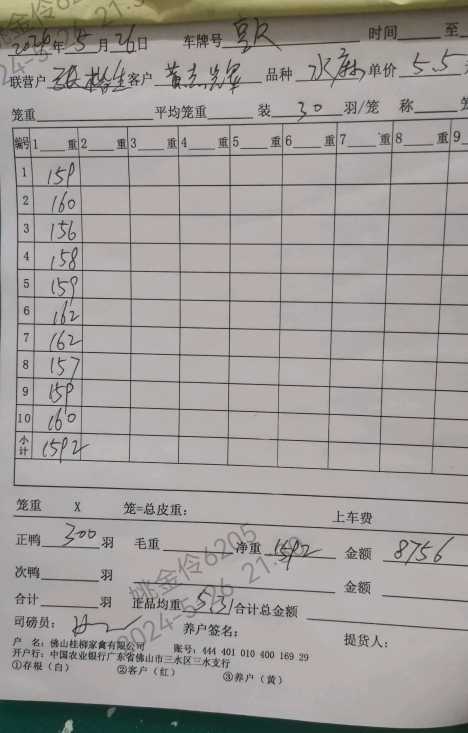 2024年5月26日 车牌号 豆 时间 至
联营户 客户 黄志 品种 水麻 单价 5.5 元
笼重 平均笼重 装 30 羽/笼 称 笼
编号 1 重 2 重 3 重 4 重 5 重 6 重 7 重 8 重 9
1 159
2 160
3 156
4 158
5 159
6 162
7 162
8 157
9 159
10 160
小计 1592
笼重 X 笼=总皮重: 上车费
正鸭 300 羽 毛重 净重 1592 金额 8756
次鸭 羽 金额
合计 羽 正品均重 5.31 合计总金额
司磅员: 养户签名: 提货人:
户 名: 佛山桂柳家禽有限公司 账号: 444 401 010 400 169 29
开户行: 中国农业银行广东省佛山市三水区三水支行
①存根（白） ②客户（红） ③养户（黄）
姚金伶6205
2024-5-26 21: